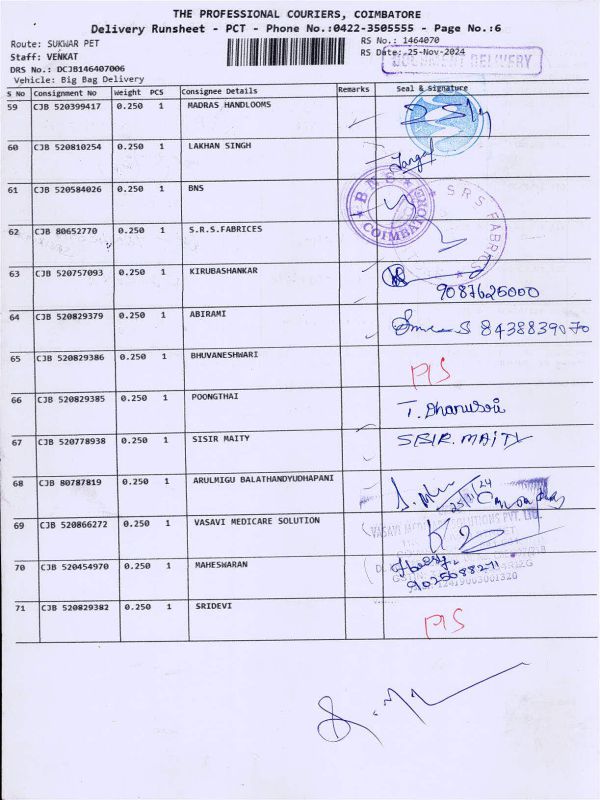 THE PROFESSIONAL COURIERS, COIMBATORE
Delivery Runsheet - PCT - Phone No.:0422-3505555 - Page No.:6
Route: SUKWAR PET
RS No.: 1464070
Staff: VENKAT
RS Date:,25-Nov-2024
DRS No.: DCJB146407006
DOCUMENT DELIVERY
Vehicle: Big Bag Delivery
S No Consignment No Weight PCS Consignee Details Remarks Seal & Signature
59 CJB 520399417 0.250 1 MADRAS HANDLOOMS
60 CJB 520810254 0.250 1 LAKHAN SINGH
61 CJB 520584026 0.250 1 BNS
BNS COIMBATORE
62 CJB 80652770 0.250 1 S.R.S.FABRICES
SRS FABRICS
63 CJB 520757093 0.250 1 KIRUBASHANKAR
9087625000
64 CJB 520829379 0.250 1 ABIRAMI
8438839070
65 CJB 520829386 0.250 1 BHUVANESHWARI
P/S
66 CJB 520829385 0.250 1 POONGTHAI
T. Dhanusri
67 CJB 520778938 0.250 1 SISIR MAITY
SISIR. MAITY
68 CJB 80787819 0.250 1 ARULMIGU BALATHANDYUDHAPANI
25/11/24
69 CJB 520866272 0.250 1 VASAVI MEDICARE SOLUTION
VASAVI MEDICARE SOLUTIONS PVT. LTD.
70 CJB 520454970 0.250 1 MAHESWARAN
9025088271
71 CJB 520829382 0.250 1 SRIDEVI
P/S